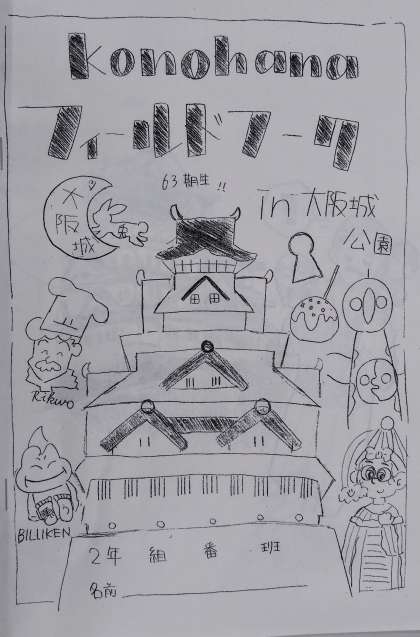 Konohana
フィールドワーク
63期生!!
in 大阪城
公園
大
阪
城
Rikuo
BILLIKEN
2年 組 番 班
名前